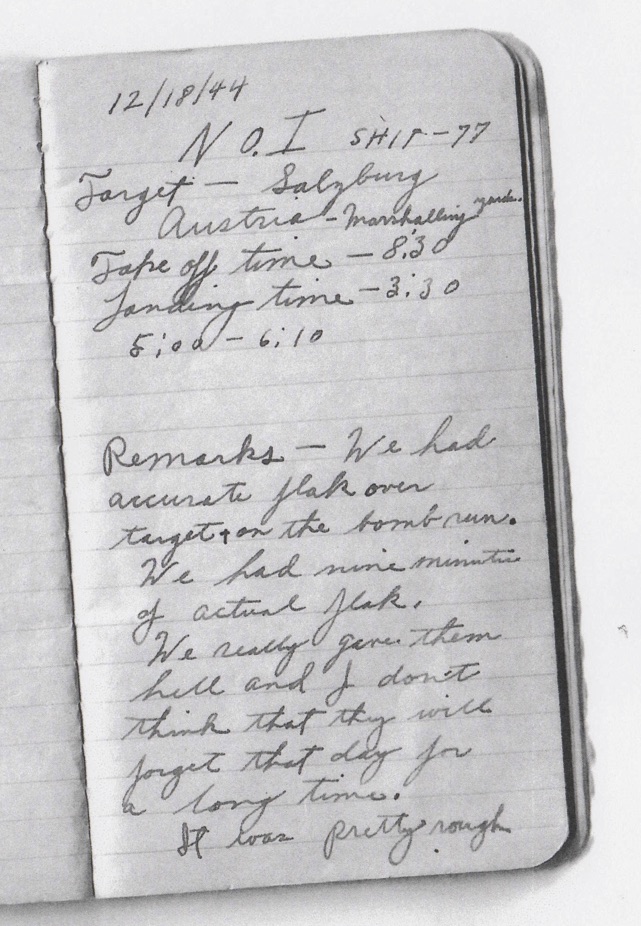 12/18/44
NO. I SHIP-77
Target — Salzburg
Austria - Marshalling yards.
Take off time — 8:30
Landing time — 3:30
5:00 - 6:10
Remarks — We had
accurate flak over
target + on the bomb run.
We had nine minutes
of actual flak.
We really gave them
hell and I don't
think that they will
forget that day for
a long time.
It was pretty rough